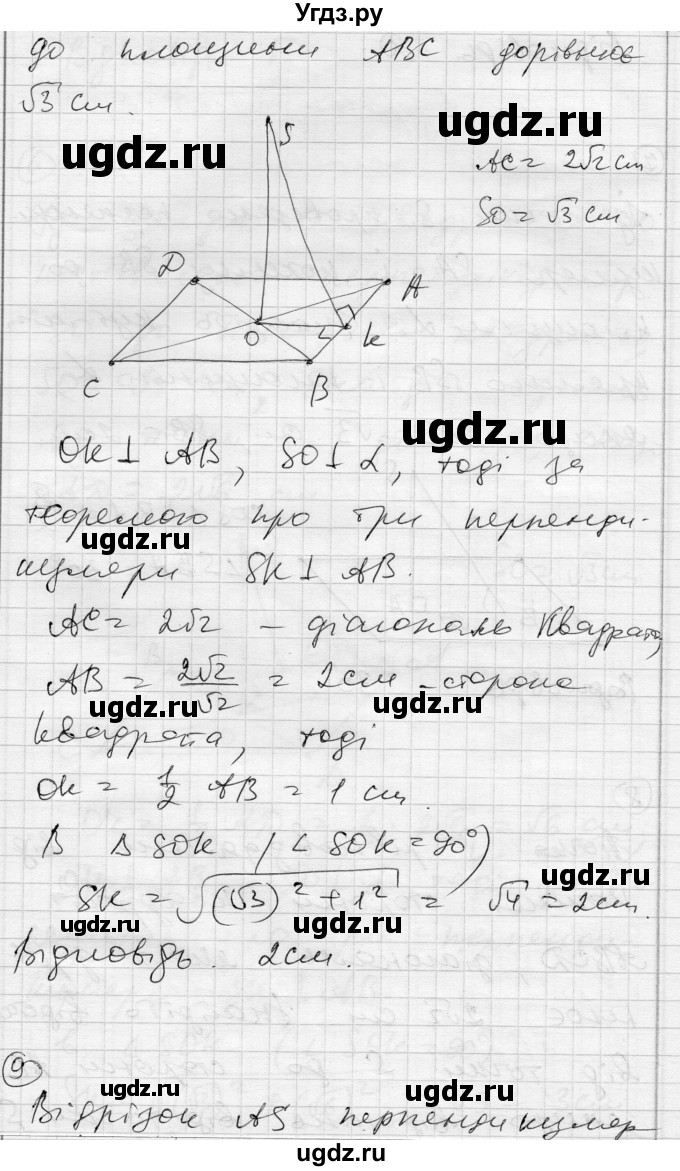 Угдз.ру
до площини ABC дорівнює
√3 см.
ugdz.ru
ugdz.ru
AC = 2√2 см
SO = √3 см
S
D
A
O
K
C
B
ugdz.ru
OK ⊥ AB, SO ⊥ α, тоді за
теоремою про три перпенди-
ugdz.ru
куляри SK ⊥ AB.
AC = 2√2 – діагональ квадрата,
AB = 2√2/√2 = 2 см – сторона
ugdz.ru
ugdz.ru
квадрата, тоді
OK = 1/2 AB = 1 см.
В Δ SOK (∠ SOK = 90°)
SK = √((√3)² + 1²) = √4 = 2 см.
ugdz.ru
ugdz.ru
Відповідь. 2 см.
9
ugdz.ru
ugdz.ru
Відрізок AS перпендикуляр
ugdz.ru